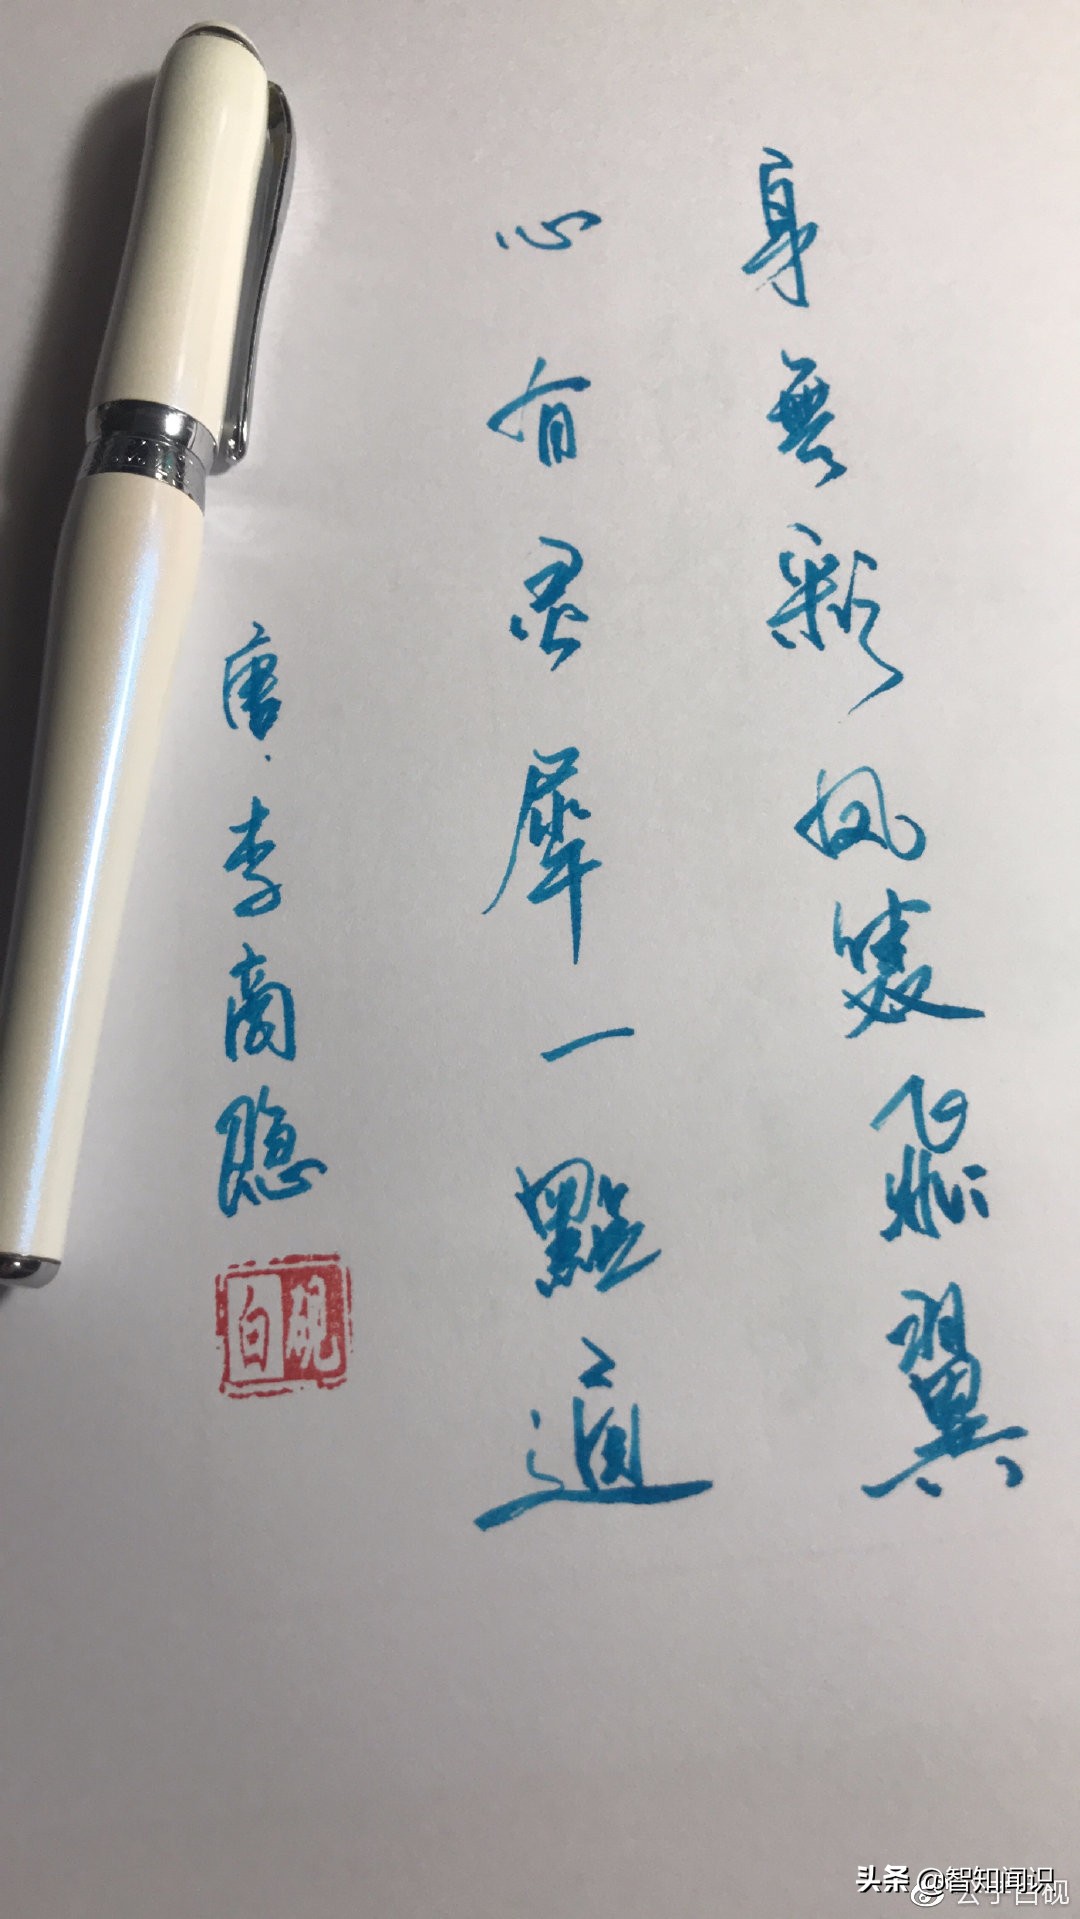 身無彩凤雙飛翼
心有灵犀一點通
唐·李商隐
白砚
头条 @智知闻识
白砚